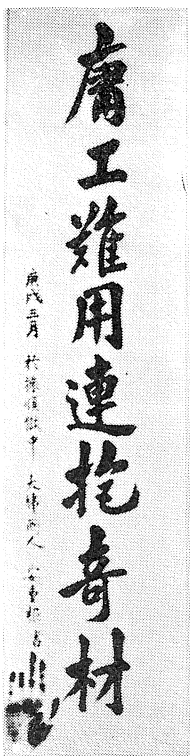 庸工難用連抱奇材
庚戌三月 於旅順獄中 大韓國人 安重根書